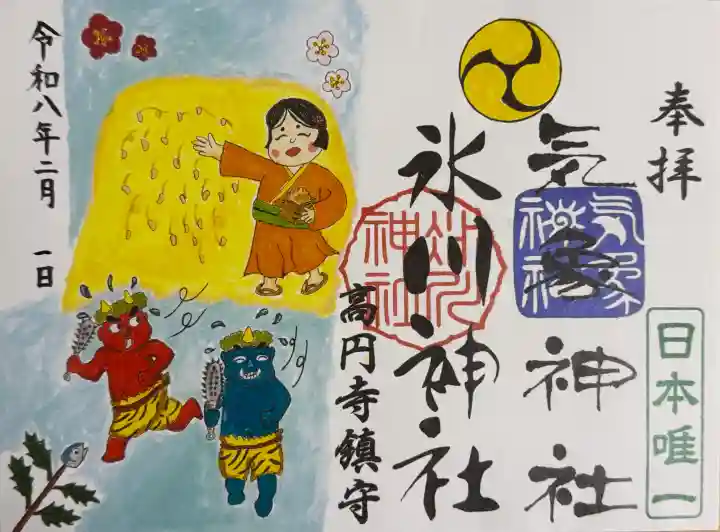 奉拝
日本唯一
気象神社
氷川神社
高円寺鎮守
令和八年二月 一日
気象神社
氷川神社